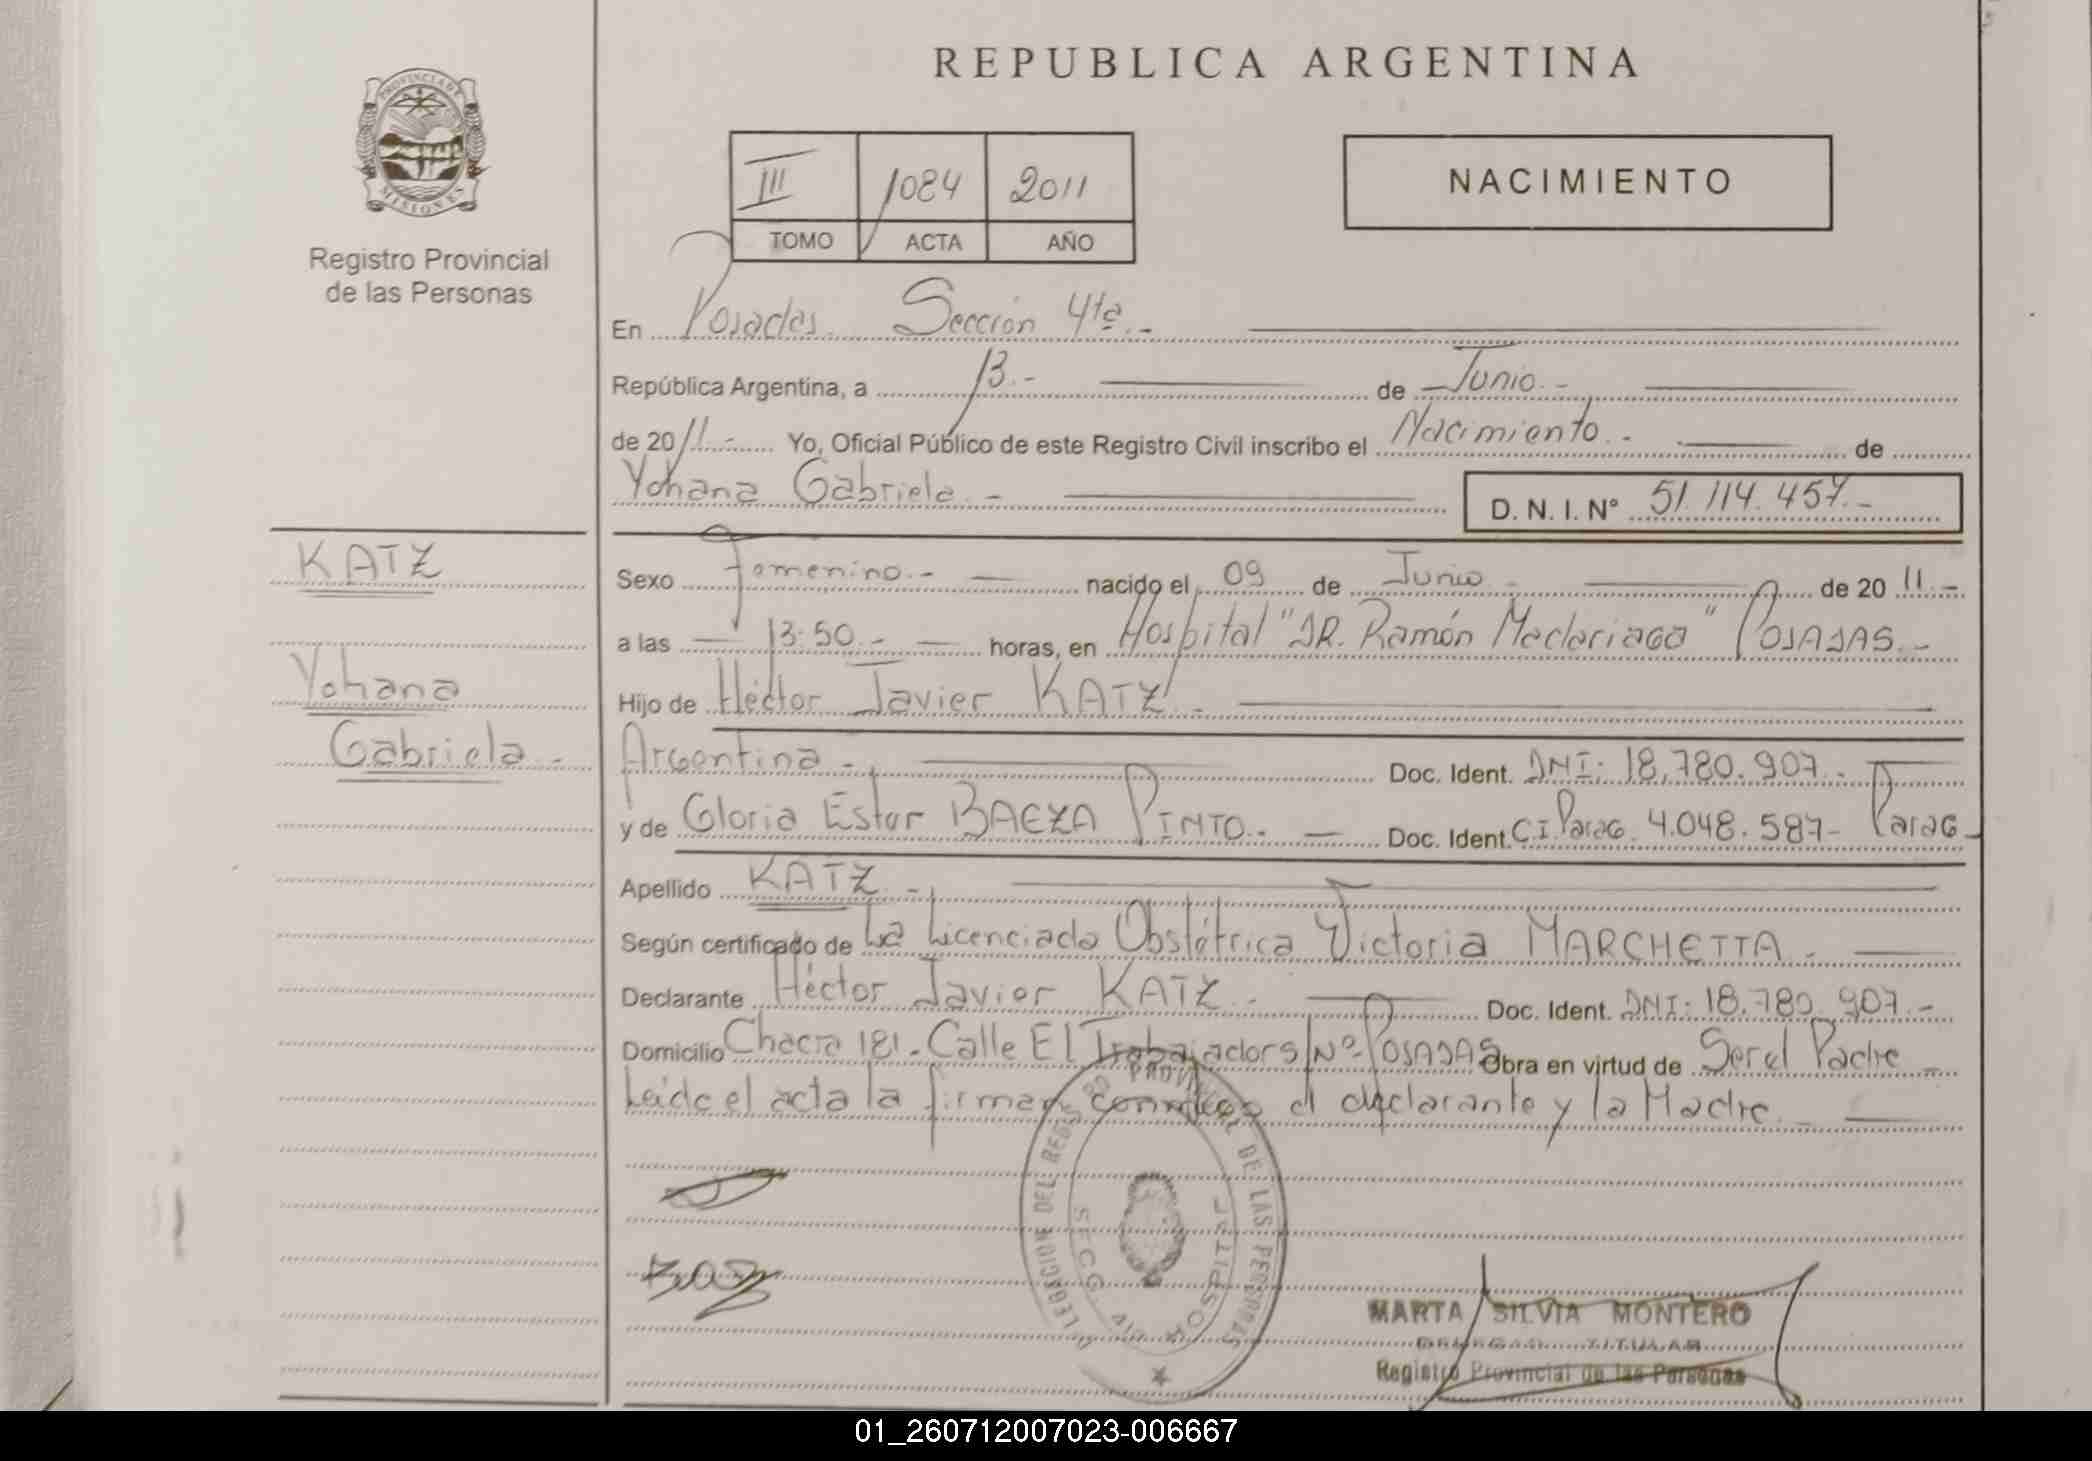 REPUBLICA ARGENTINA
PROVINCIA DE
MISIONES
Registro Provincial
de las Personas
III 1084 2011
TOMO ACTA AÑO
NACIMIENTO
En Posadas Sección 4ta.-
República Argentina, a 13.- de Junio.-
de 2011.- Yo, Oficial Público de este Registro Civil inscribo el Nacimiento.- de
Yohana Gabriela.-
D. N. I. Nº 51.114.457.-
KATZ
Yohana
Gabriela.-
Sexo femenino.- nacido el 09 de Junio.- de 2011.-
a las 13:50.- horas, en Hospital "DR. Ramón Madariaga" POSADAS.-
Hijo de Héctor Javier KATZ.-
Argentina.- Doc. Ident. DNI: 18.780.907.-
y de Gloria Ester BAEZA PINTO.- Doc. Ident. C.I. Parag. 4.048.587- Parag-
Apellido KATZ.-
Según certificado de La Licenciada Obstétrica Victoria MARCHETTA.-
Declarante Héctor Javier KATZ.- Doc. Ident. DNI: 18.780.907.-
Domicilio Chacra 181.- Calle El Trabajador S/Nº- POSADAS Obra en virtud de Ser el Padre-
Leída el acta la firman conmigo el declarante y la Madre.-
DELEGACION DEL REGISTRO PROVINCIAL DE LAS PERSONAS
HOSPITAL
MARTA SILVIA MONTERO
DELEGADA TITULAR
Registro Provincial de las Personas
01_260712007023-006667